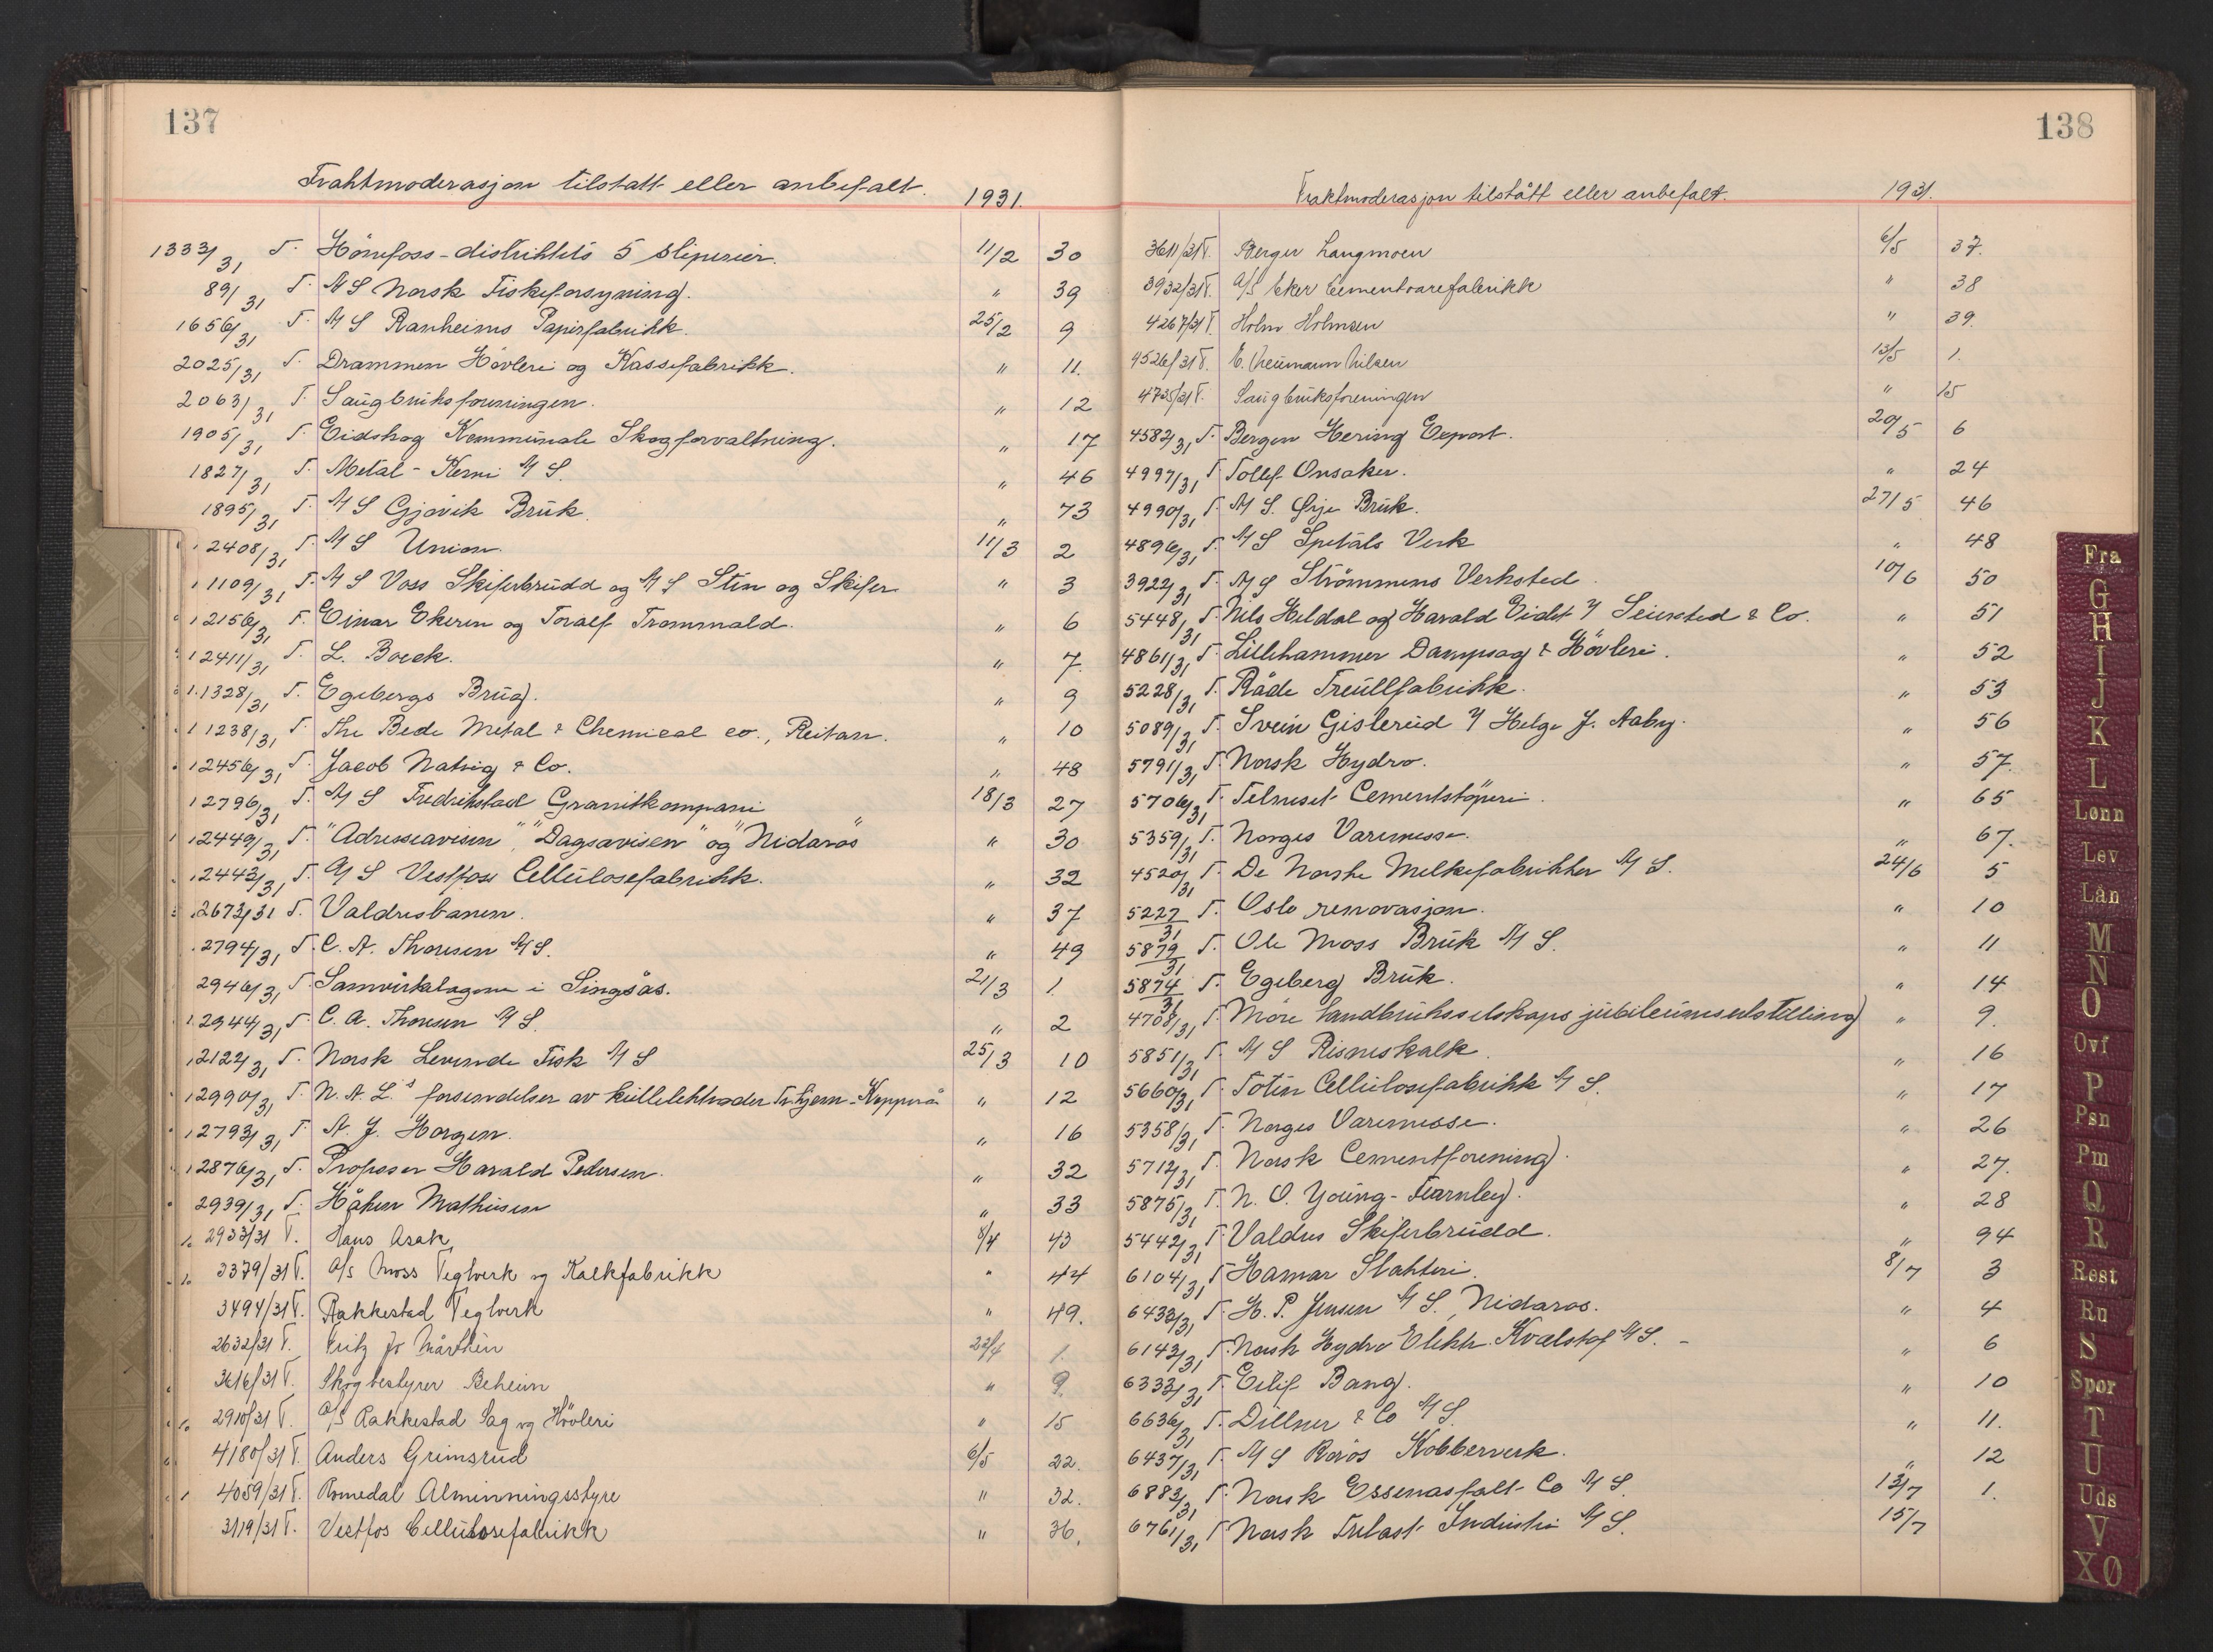 137
Frahtmoderasjon tilstått eller anbefalt. 1931.
1333/31 T. Hönefoss-distriktets 5 sliperier. 11/2 30
89/31 T. A/S Norsk Fiskeforsyning. " 39
1656/31 T. A/S Ranheims Papirfabrikk. 25/2 9
2025/31 T. Drammen Hövleri og Kassefabrikk. " 11.
2063/31 T. Saugbruksforeningen. " 12
1905/31 T. Eidskog Kommunale Skogforvaltning. " 17
1827/31 T. Metal-Kemi A/S. " 46
1895/31 T. A/S Gjøvik Bruk. " 73
2408/31 T. A/S Union. 11/3 2
1109/31 T. A/S Voss Skiferbrudd og A/S Sten og Skifer " 3
2156/31 T. Einar Ekeren og Toralf Trommald. " 6
2411/31 T. L. Boeck. " 7.
1328/31 T. Egebergs Brug. " 9
1238/31 T. The Bede Metal & Chemical co., Reitan. " 10
2456/31 T. Jacob Natvig & Co. " 48
2796/31 T. A/S Fredrikstad Granitkompani 18/3 27
2449/31 T. "Adresseavisen", "Dagsavisen" og "Nidaros" " 30
2443/31 T. A/S Vestfos Cellulosefabrikk. " 32
2673/31 T. Valdresbanen. " 37
2794/31 T. C. A. Thoresen A/S. " 49
2946/31 T. Samvirkelagene i Singsås. 21/3 1.
2944/31 T. C. A. Thoresen A/S. " 2
2122/31 T. Norsk Levende Fisk A/S 25/3 10
2990/31 T. N. A. L.s forsendelser av kullelektroder Tr.hjem-Kopperå " 12
2793/31 T. A. J. Horgen. " 16
2876/31 T. Professor Harald Pedersen. " 32
2939/31 T. Håken Mathiesen " 33
2933/31 T. Hans Asak 8/4 43
3379/31 T. A/S Moss Teglverk og Kalkfabrikk " 44
3494/31 T. Rakkestad Teglverk " 49.
2632/31 T. Fritz 22/4 1.
3616/31 T. Skogbestyrer Beheim " 9.
2910/31 T. A/S Rakkestad Sag og Hövleri " 15
4180/31 T. Anders Grimsrud 6/5 22.
4059/31 T. Romedal Alminningsstyre " 32.
3119/31 T. Vestfos Cellulosefabrikk " 36.
138
Fraktmoderasjon tilstått eller anbefalt. 1931.
3611/31 T. Berger Langmoen 6/5 37.
3932/31 T. A/S Eker Cementvarefabrikk " 38
4267/31 T. Holm Holmsen " 39.
4526/31 T. E. Neumann Nilsen 13/5 1.
4735/31 T. Saugbruksforeningen " 15
4582/31 T. Bergen Hering Export. 20/5 6
4997/31 T. Tollef Onsaker. " 24
4990/31 T. A/S. Ørje Bruk. 27/5 46
4896/31 T. A/S Spetals Verk " 48
3922/31 T. A/S Strömmens Verksted. 10/6 50
5448/31 T. Nils Heldal og Harald Eidet v/ Seiersted & Co. " 51
4861/31 T. Lillehammer Dampsag & Hövleri. " 52
5228/31 T. Råde Treullfabrikk. " 53
5089/31 T. Svein Gislerud v/ Helge J. Aaby. " 56
5791/31 T. Norsk Hydro. " 57.
5706/31 T. Telneset Cementstöperi. " 65
5359/31 T. Norges Varemesse. " 67.
4520/31 T. De Norske Melkefabrikker A/S. 24/6 5
5227/31 T. Oslo renovasjon. " 10
5879/31 T. Ole Moss Bruk A/S. " 11
5874/31 T. Egeberg Bruk. " 14
4708/31 T. Möre Landbruksselskaps jubileumsutstilling " 9.
5851/31 T. A/S Risneskalk. " 16
5660/31 T. Toten Cellulosefabrikk A/S. " 17
5358/31 T. Norges Varemesse. " 26
5712/31 T. Norsk Cementforening. " 27.
5875/31 T. N. O. Young-Fearnley. " 28
5442/31 T. Valdres Skiferbrudd. " 94
6104/31 T. Hamar Slakteri. 8/7 3
6433/31 T. H. P. Jensen A/S, Nidaros. " 4
6143/31 T. Norsk Hydro Elektr. Kvælstof A/S. " 6
6333/31 T. Eilif Bang. " 10
6636/31 T. Dillner & Co A/S. " 11.
6437/31 T. A/S Röros Kobberverk. " 12
6883/31 T. Norsk Essenasfalt Co A/S. 13/7 1.
6761/31 T. Norsk Trelast-Industri A/S. 15/7
Fra
G
H
I
J
K
L
Lønn
Lev
Lån
M
N
O
Ovf
P
Psn
Pm
Q
R
Rest
Ru
S
Spor
T
U
Uds
V
XØ